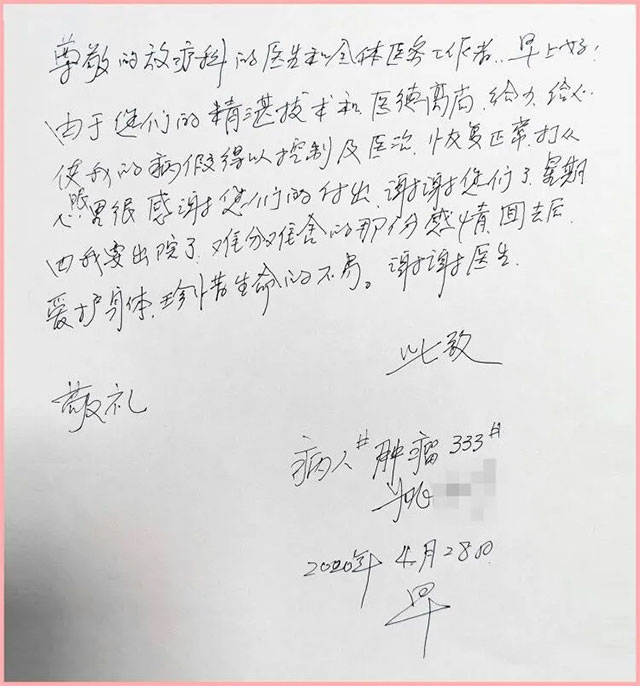 尊敬的放疗科的医生和全体医务工作者、早上好！
由于您们的精湛技术和医德高尚，给力，给心
使我的病假得以控制及医治，恢复正常，打从
心思里很感谢您们的付出，谢谢您们了，星期
四我要出院了，难分难舍的那份感情，回去后，
爱护身体，珍惜生命的不易。谢谢医生
此致
敬礼
病人#肿瘤333#
姚
2020年4月28日
早